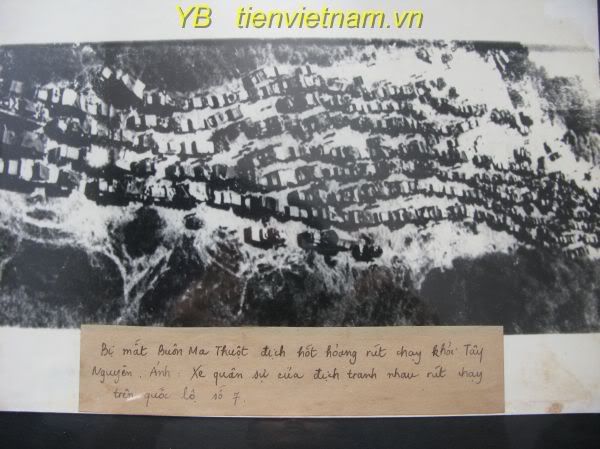 YB tienvietnam.vn
Bị mất Buôn Ma Thuột địch hốt hoảng rút chạy khỏi Tây
Nguyên. Ảnh: Xe quân sự của địch tranh nhau rút chạy
trên quốc lộ số 7.